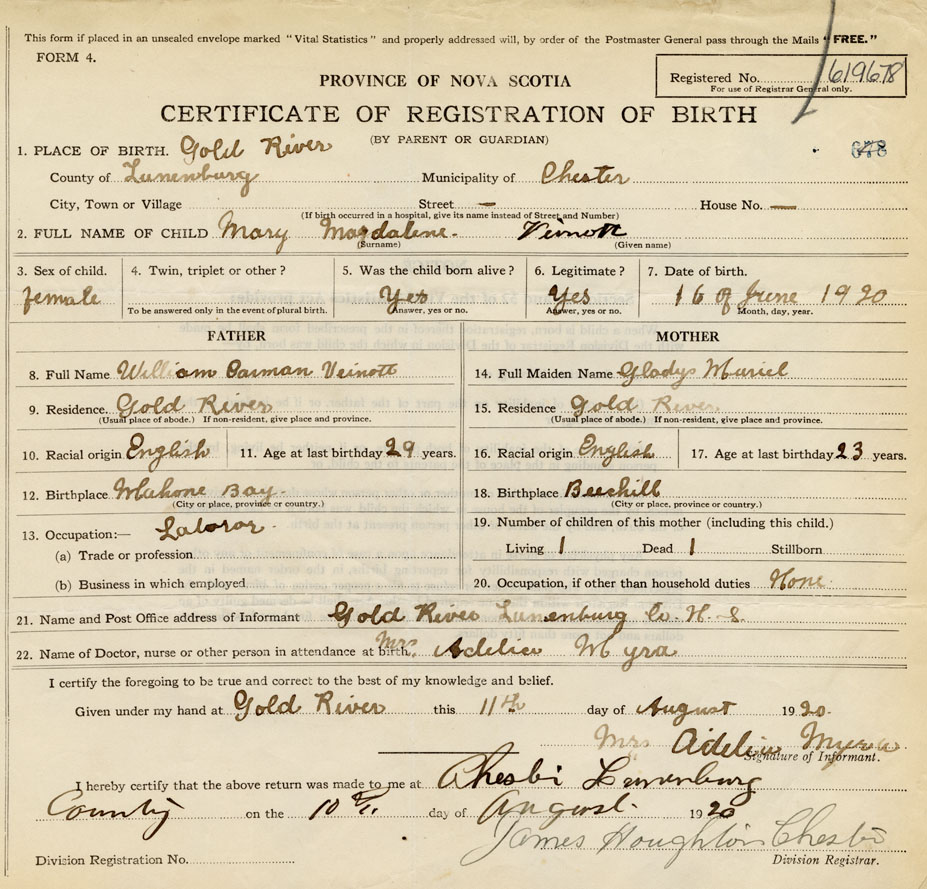 This form if placed in an unsealed envelope marked "Vital Statistics" and properly addressed will, by order of the Postmaster General pass through the Mails "FREE."
FORM 4.
PROVINCE OF NOVA SCOTIA
Registered No. 619678
For use of Registrar General only.
CERTIFICATE OF REGISTRATION OF BIRTH
(BY PARENT OR GUARDIAN)
678
1. PLACE OF BIRTH. Gold River
County of Lunenburg Municipality of Chester
City, Town or Village Street — House No. —
(If birth occurred in a hospital, give its name instead of Street and Number)
2. FULL NAME OF CHILD Mary Magdalene. Veinott
(Surname) (Given name)
3. Sex of child. 4. Twin, triplet or other? 5. Was the child born alive? 6. Legitimate? 7. Date of birth.
female Yes Yes 16 of June 1920
To be answered only in the event of plural birth. Answer, yes or no. Answer, yes or no. Month, day, year.
FATHER MOTHER
8. Full Name William Parman Veinott 14. Full Maiden Name Gladys Muriel
9. Residence. Gold River 15. Residence Gold River
(Usual place of abode.) If non-resident, give place and province. (Usual place of abode.) If non-resident, give place and province.
10. Racial origin English 11. Age at last birthday 29 years. 16. Racial origin English 17. Age at last birthday 23 years.
12. Birthplace Mahone Bay. 18. Birthplace Beechill
(City or place, province or country.) (City or place, province or country.)
13. Occupation:— Laboror. 19. Number of children of this mother (including this child.)
(a) Trade or profession Living 1 Dead 1 Stillborn
(b) Business in which employed 20. Occupation, if other than household duties None
21. Name and Post Office address of Informant Gold River Lunenburg Co. N. S.
22. Name of Doctor, nurse or other person in attendance at birth. Mrs. Adelia Myra
I certify the foregoing to be true and correct to the best of my knowledge and belief.
Given under my hand at Gold River this 11th day of August 1920.
Mrs Adelia Myra
Signature of Informant.
I hereby certify that the above return was made to me at Chester Lunenburg
County on the 10th day of August. 1920
James Houghton Chester
Division Registration No. Division Registrar.